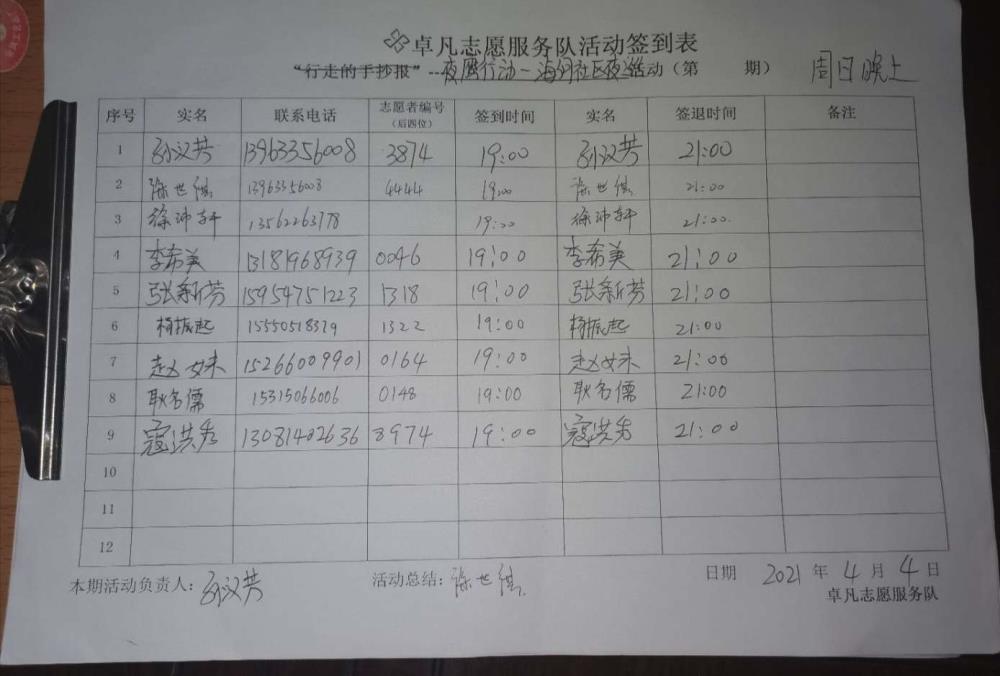 卓凡志愿服务队活动签到表
“行走的手抄报”--夜鹰行动-海河社区夜巡活动（第 期） 周日晚上
序号 实名 联系电话 志愿者编号（后四位） 签到时间 实名 签退时间 备注
1 孙汉芸 13963356008 3874 19:00 孙汉芸 21:00
2 徐世儒 13963356008 4444 19:00 徐世儒 21:00
3 徐沛轩 13562263778 19:00 徐沛轩 21:00
4 李希美 13181968939 0046 19:00 李希美 21:00
5 张新芳 15954751223 1318 19:00 张新芳 21:00
6 杨振起 15550518379 1322 19:00 杨振起 21:00
7 赵女未 15266009901 0164 19:00 赵女未 21:00
8 耿名儒 15315066006 0148 19:00 耿名儒 21:00
9 寇洪秀 13081402636 8974 19:00 寇洪秀 21:00
10
11
12
本期活动负责人：孙汉芸 活动总结：徐世儒 日期 2021 年 4 月 4 日
卓凡志愿服务队